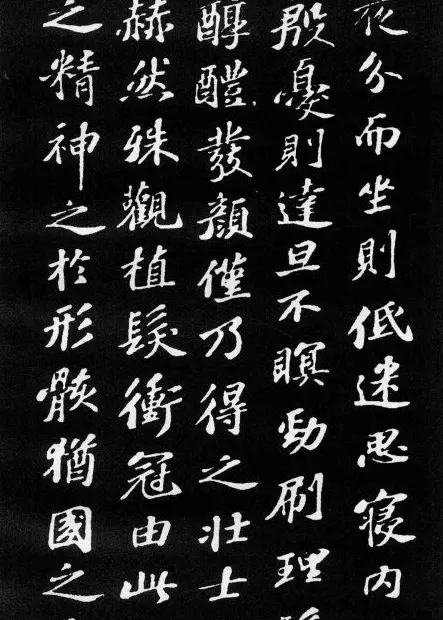 夜分而坐則低迷思寢内
殷憂則達旦不瞑勁刷理
醇醴發顏僅乃得之壯士
赫然殊觀植髮衝冠由此
之精神之於形骸猶國之